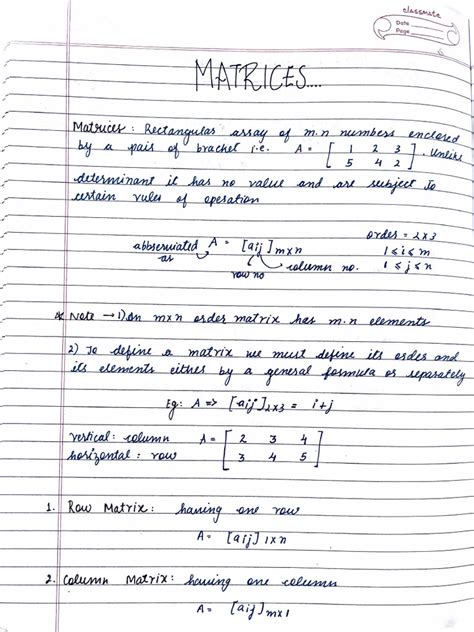 classmate
Date
Page
MATRICES....
Matrices : Rectangular array of m.n numbers enclosed
by a pair of bracket i.e. A = [ 1 2 3 ] . Unlike
5 4 2
determinant it has no value and are subject to
certain rules of operation
order = 2x3
abbreviated A = [aij] m×n 1 ≤ i ≤ m
as row no column no. 1 ≤ j ≤ n
* Note → 1) An m×n order matrix has m.n elements
2) To define a matrix we must define its order and
its elements either by a general formula or separately
Eg: A => [aij] 2×3 = i+j
vertical : column A = [ 2 3 4 ]
horizontal : row 3 4 5
1. Row Matrix : having one row
A = [aij] 1×n
2. Column Matrix : having one column
A = [aij] m×1